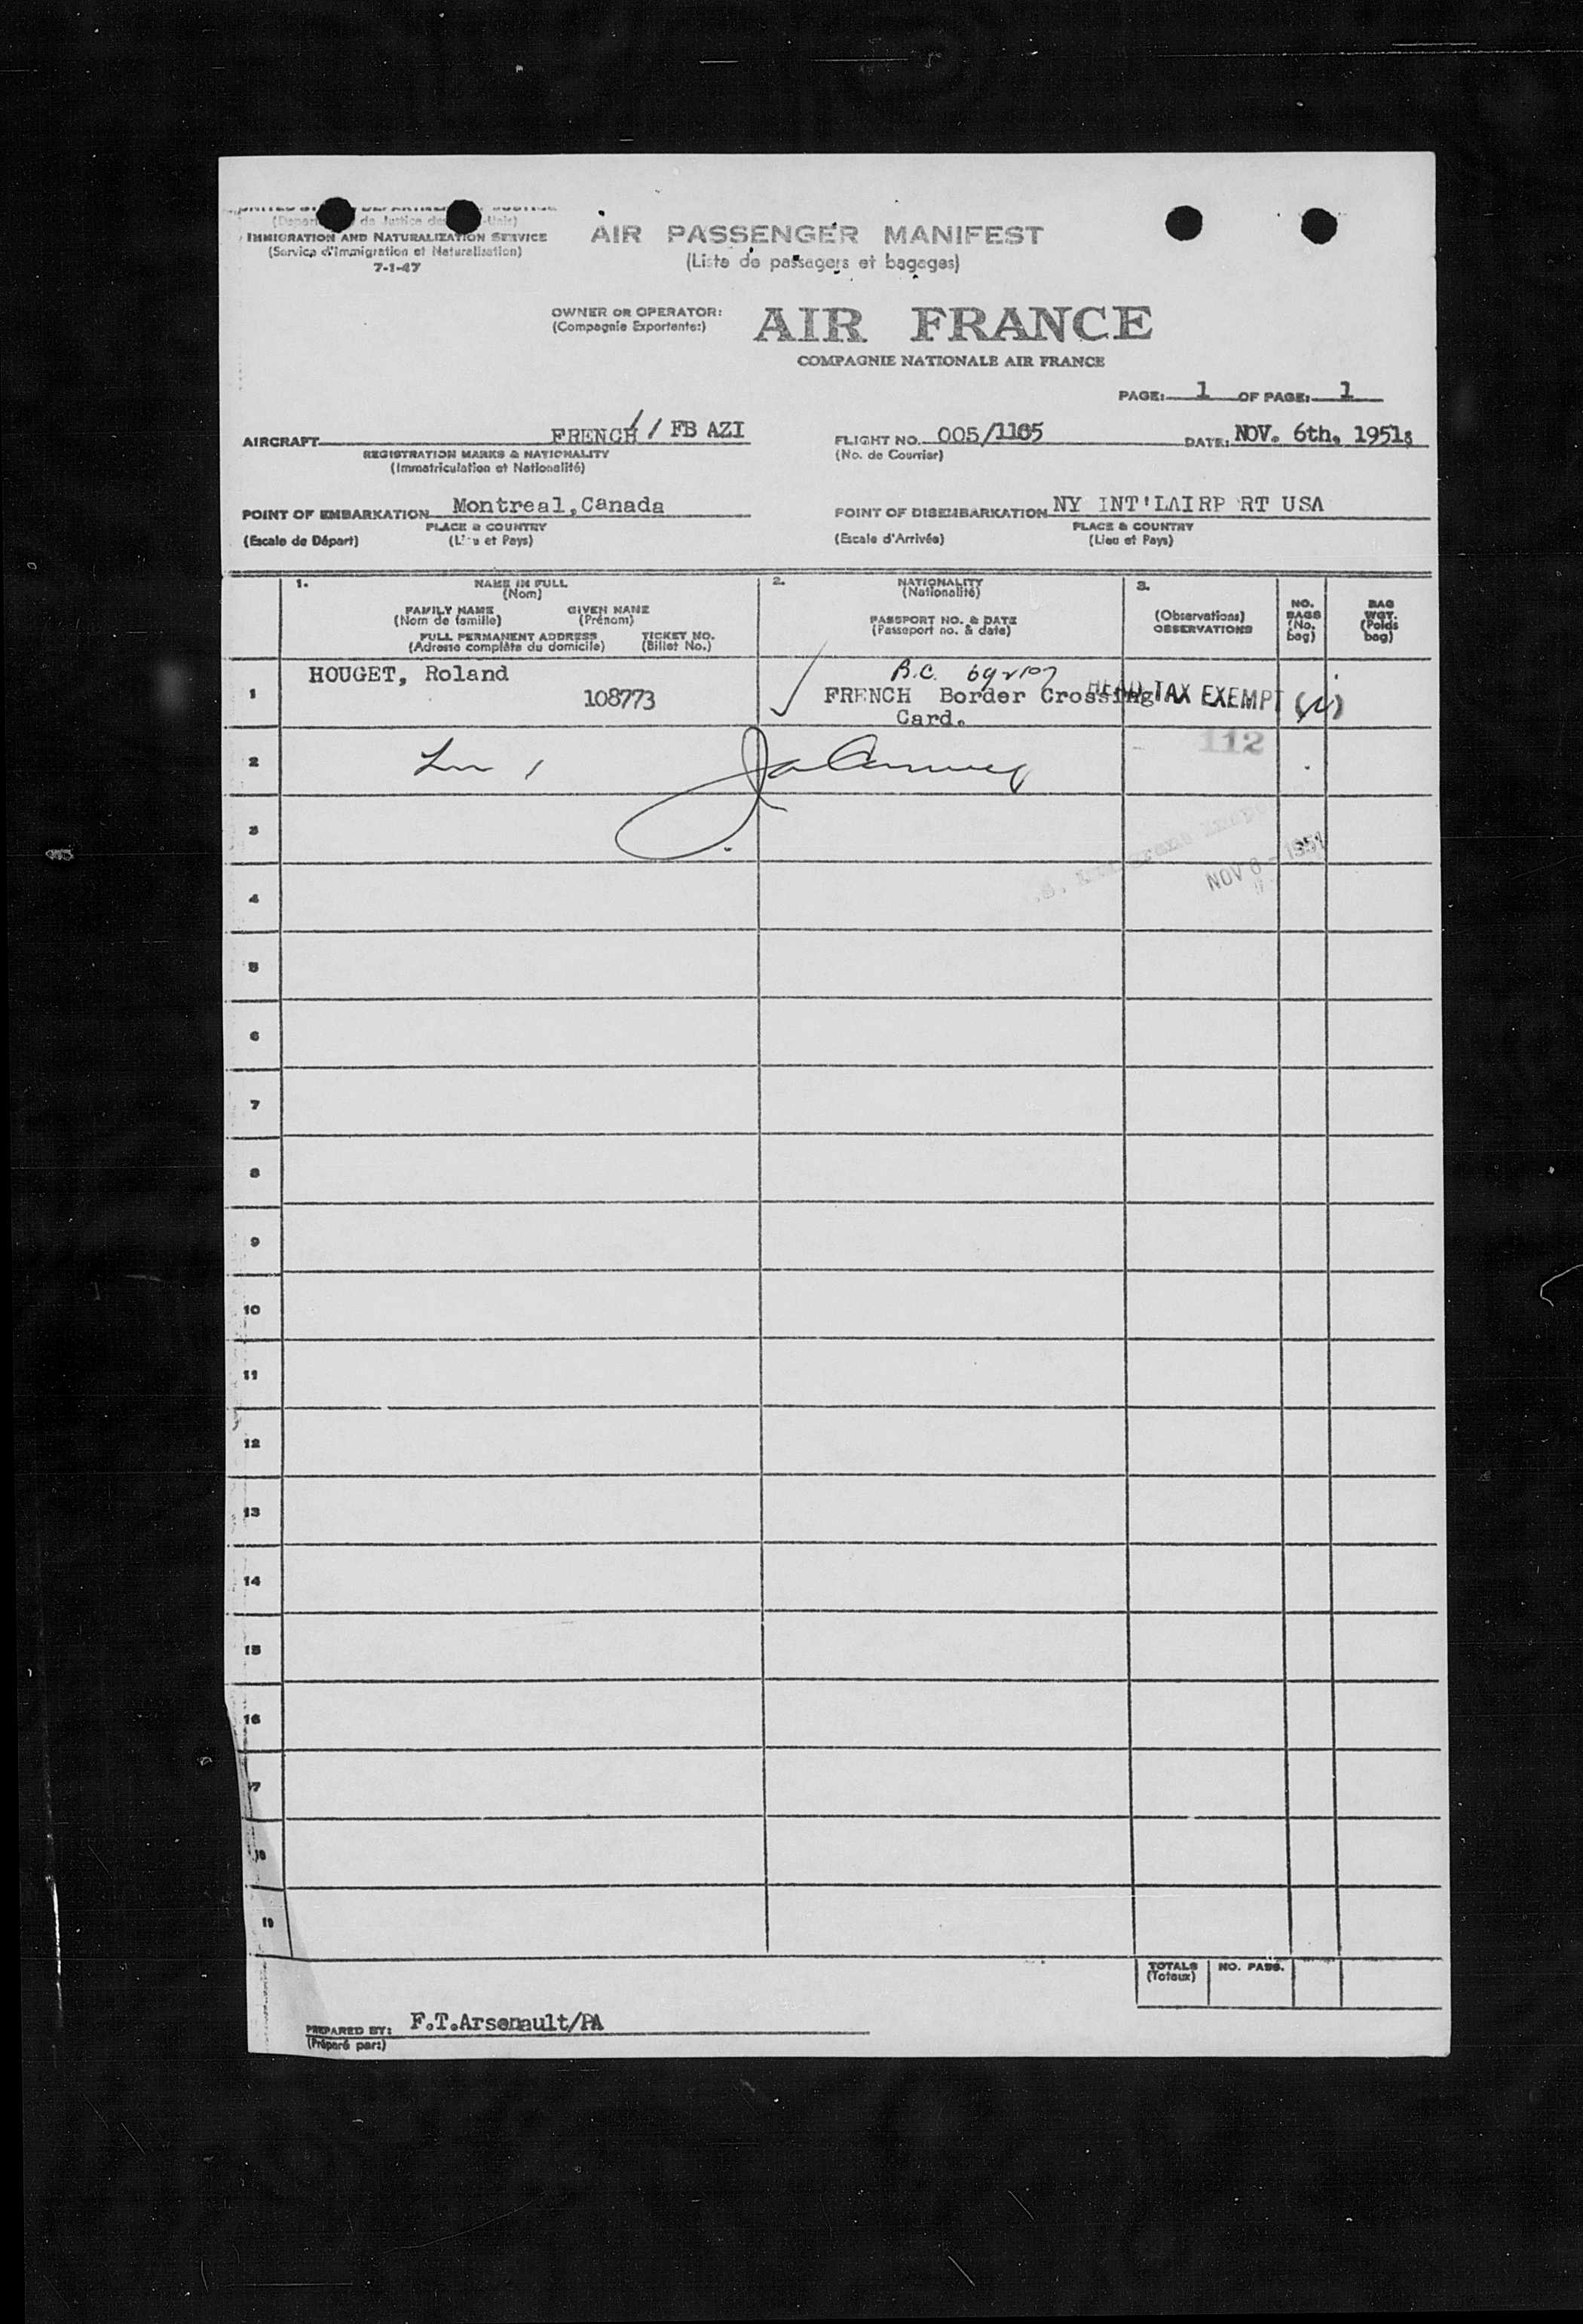 (Départ de Justice des -Unis)
IMMIGRATION AND NATURALIZATION SERVICE
(Service d'Immigration et Naturalisation)
7-1-47
AIR PASSENGER MANIFEST
(Liste de passagers et bagages)
OWNER OR OPERATOR:
(Compagnie Exportante:)
AIR FRANCE
COMPAGNIE NATIONALE AIR FRANCE
PAGE: 1 OF PAGE: 1
AIRCRAFT FRENCH / FB AZI
REGISTRATION MARKS & NATIONALITY
(Immatriculation et Nationalité)
FLIGHT NO. 005/1105 DATE: NOV. 6th, 1951
(No. de Courrier)
POINT OF EMBARKATION Montreal,Canada
PLACE & COUNTRY
(Escale de Départ) (Lieu et Pays)
POINT OF DISEMBARKATION NY INT'LAIRP RT USA
PLACE & COUNTRY
(Escale d'Arrivée) (Lieu et Pays)
1. NAME IN FULL
(Nom)
FAMILY NAME GIVEN NAME
(Nom de famille) (Prénom)
FULL PERMANENT ADDRESS TICKET NO.
(Adresse complète du domicile) (Billet No.)
2. NATIONALITY
(Nationalité)
PASSPORT NO. & DATE
(Passeport no. & date)
3.
(Observations)
OBSERVATIONS
NO.
BAGS
(No.
bag)
BAG
WGT.
(Poids
bag)
1 HOUGET, Roland
108773
B.C.
FRENCH Border Crossing
Card.
HEAD TAX EXEMPT
112
2
3
NOV 6 - 1951
4
5
6
7
8
9
10
11
12
13
14
15
16
17
18
19
TOTALS NO. PASS.
(Totaux)
PREPARED BY: F.T.Arsenault/PA
(Préparé par:)